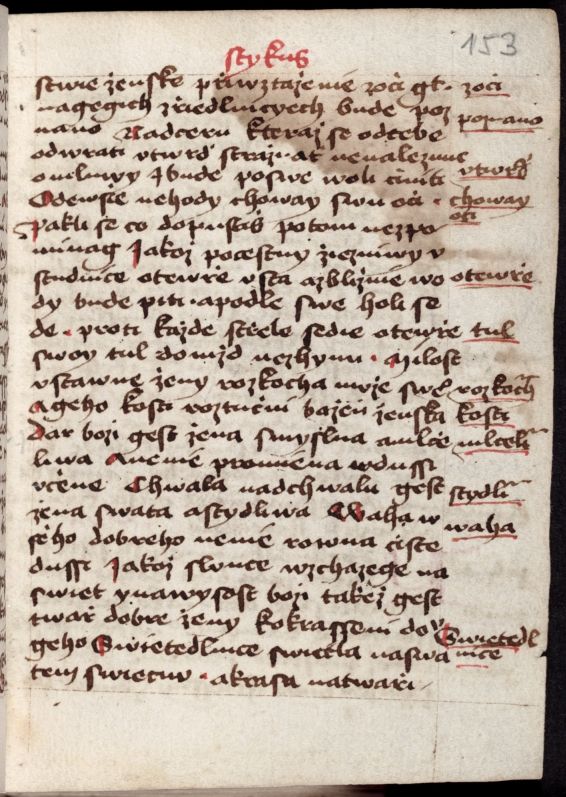 153
stykus
stwie ženske priwztaženie zoči gt. zoči
nagegich zřiedlnicyech bude poz
nano Nadceru kteraž se odtebe poznano
odwrati vtwrď straž at nenalezne
omluwy J bude poswe woli činiti vtwrď
Odewsie nehody choway swu oči . choway
Pakli se co dopustiš potom nezpo oči
minag Jakož pocestny žieziniwy v
studnice otewře vsta azbližnie wo otewře
dy bude piti apodle swe holi se
de . proti každe střele sedie otewře tul
swoy tul donižd nezhynu . Milost
vstawne ženy rozkocha muže sweͦ rozkoch
Ageho kosti roztuční kazen ženska kosti
dar boži gest žena smyslna amlče mlčeli
liwa Anenie promiena wdussi
včene Chwala nadchwalu gest stydli
žena swata astydliwa Waha w
seho dobreho nenie rowna čiste waha
dussi Jakož slunce wzchazege na
swiet ynawysost boži takež gest
twař dobre ženy kokrasseni domu
geho Swietedlnice swietla naswa Swietedl
tem swiecnu . akrasa natwaři nice